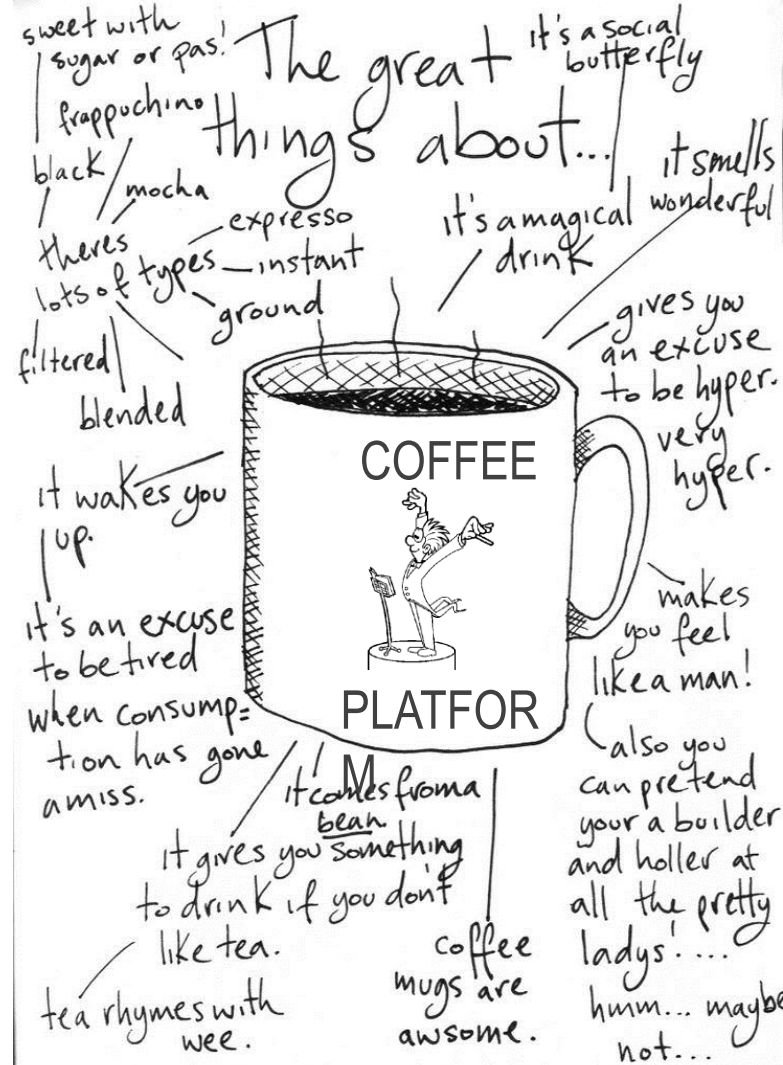 The great
things about...
sweet with
sugar or pas!
frappuchino
black
mocha
theres
lots of types
expresso
instant
ground
filtered
blended
it's a social
butterfly
it's a magical
drink
it smells
wonderful
gives you
an excuse
to be hyper.
very
hyper.
COFFEE
PLATFOR
M
it wakes you
up.
it's an excuse
to be tired
when consump=
tion has gone
amiss.
makes
you feel
like a man!
also you
can pretend
your a builder
and holler at
all the pretty
ladys!....
hmm... maybe
not...
it comes from a
bean.
it gives you something
to drink if you don't
like tea.
tea rhymes with
wee.
coffee
mugs are
awsome.